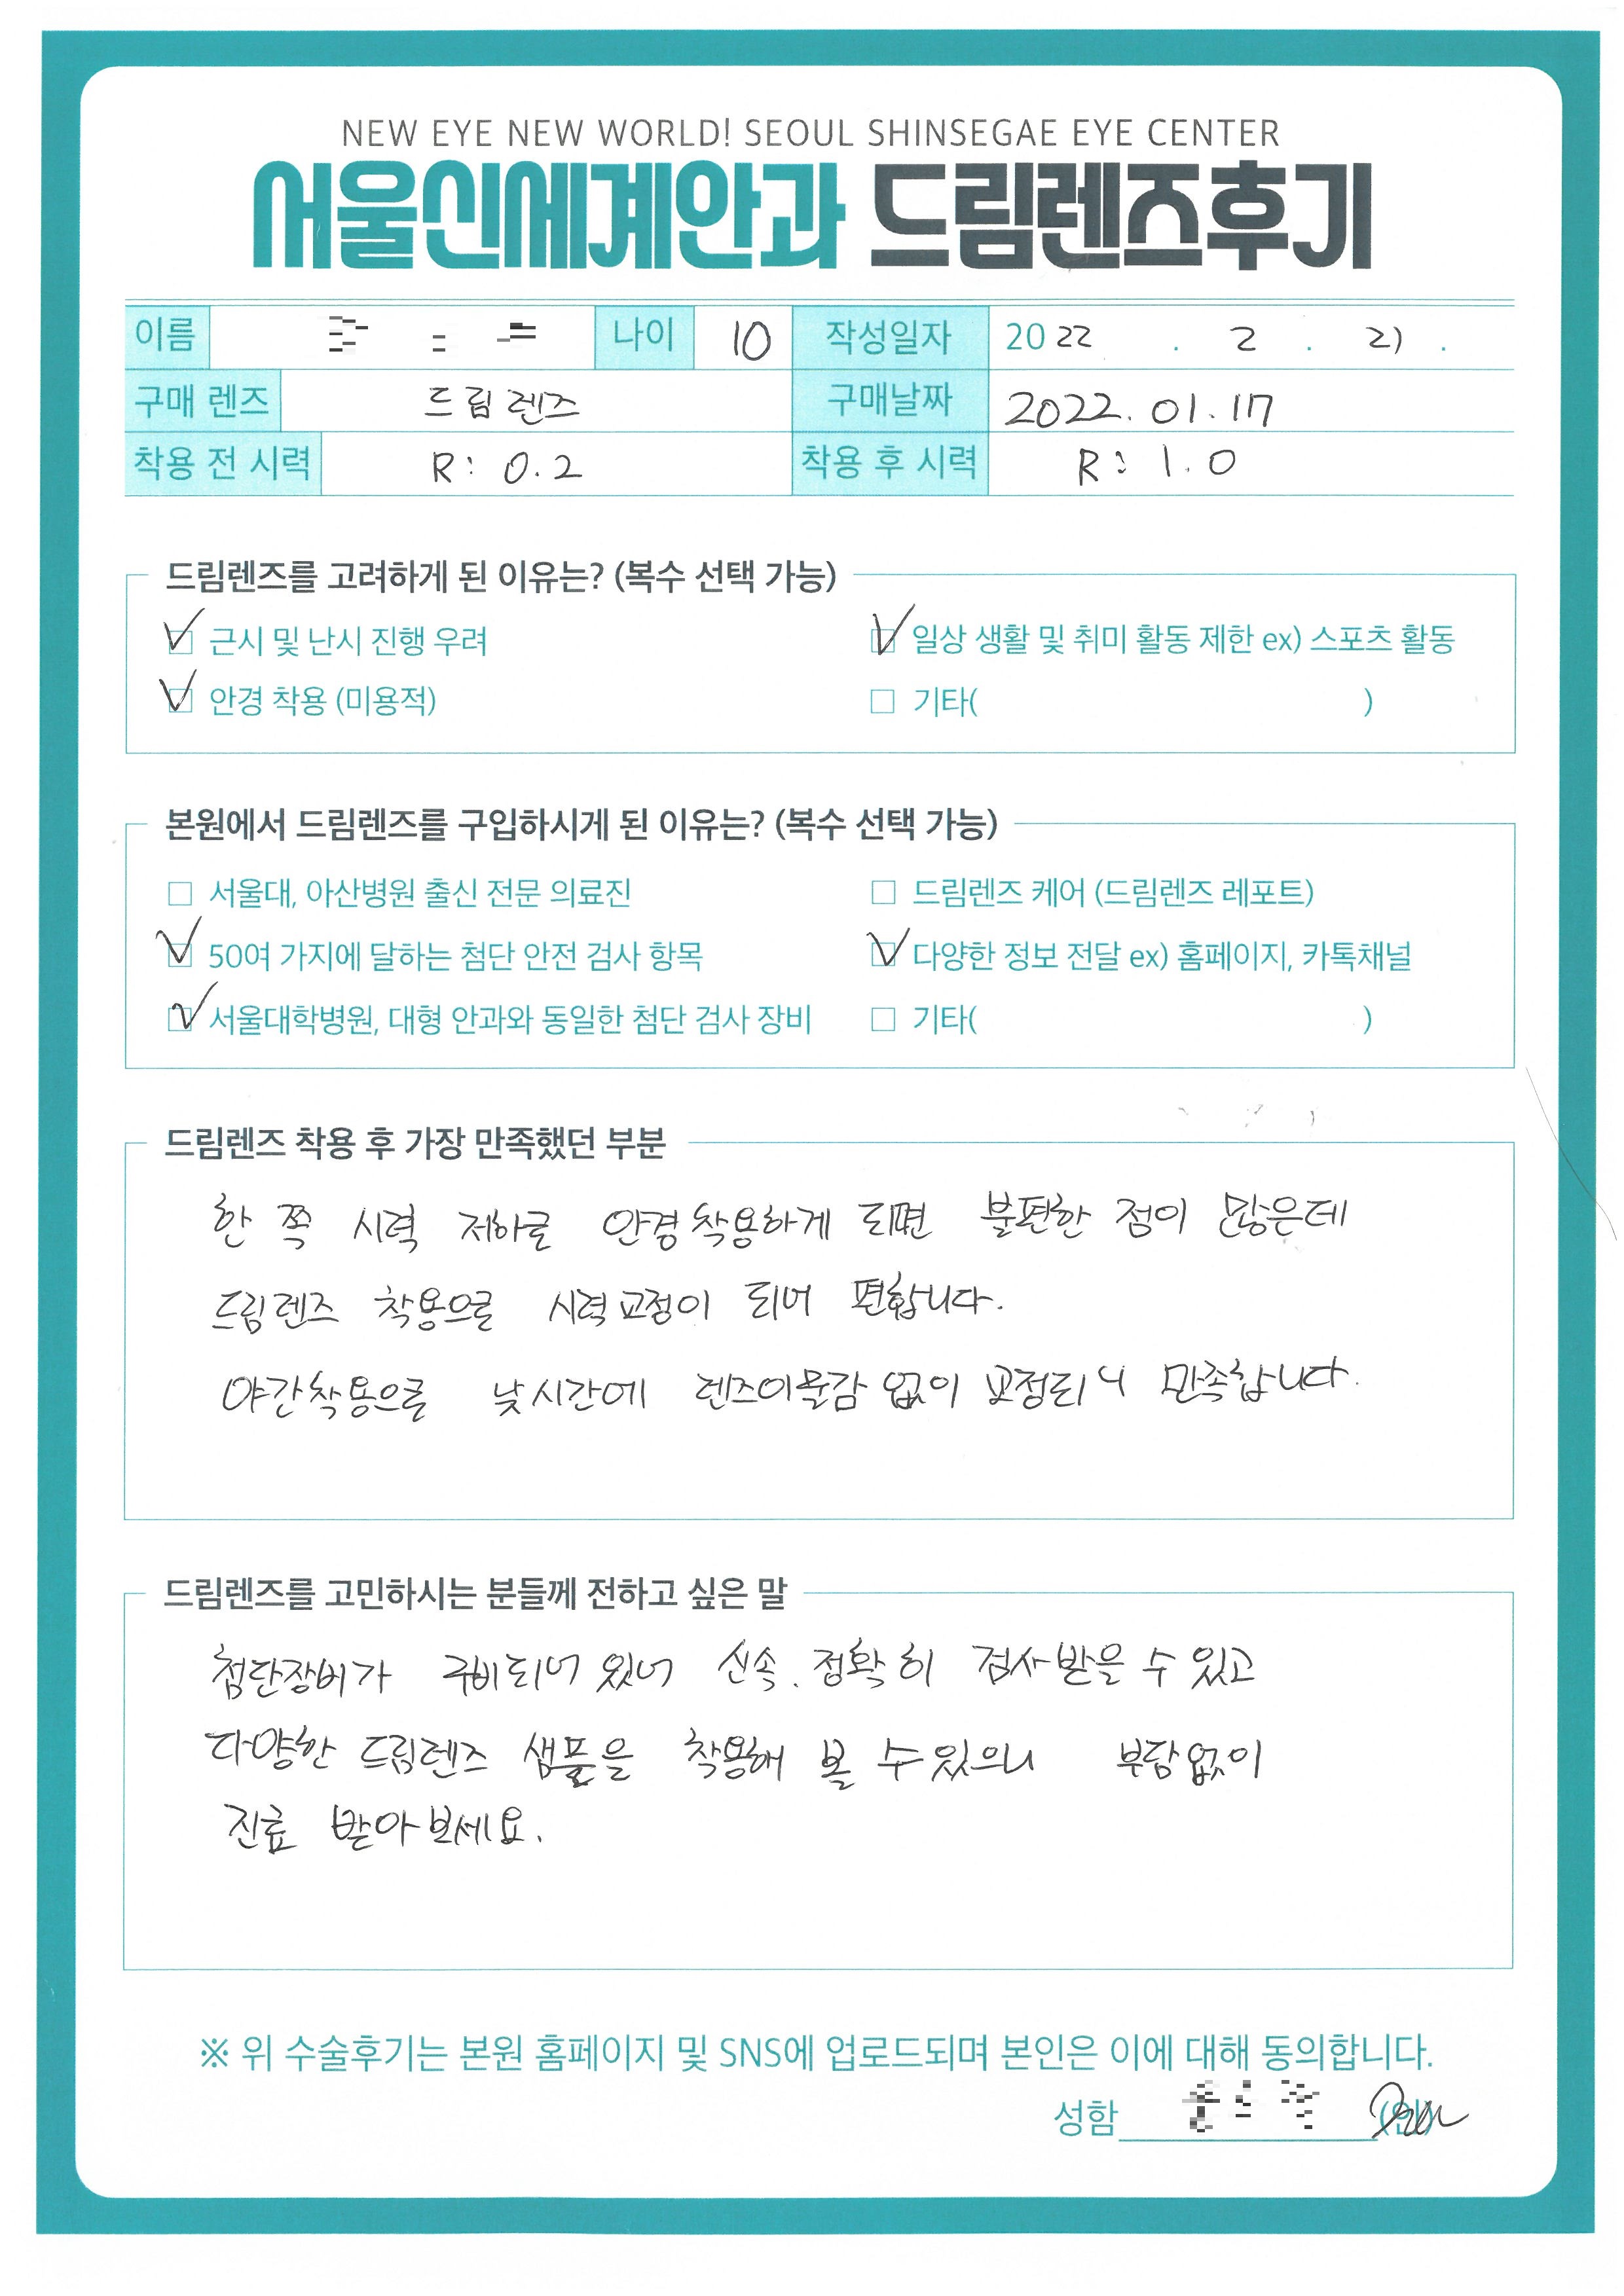 NEW EYE NEW WORLD! SEOUL SHINSEGAE EYE CENTER
서울신세계안과 드림렌즈후기
이름 나이 10 작성일자 2022 . 2 . 21 .
구매 렌즈 드림렌즈 구매날짜 2022. 01. 17
착용 전 시력 R: 0.2 착용 후 시력 R: 1.0
드림렌즈를 고려하게 된 이유는? (복수 선택 가능)
근시 및 난시 진행 우려 일상 생활 및 취미 활동 제한 ex) 스포츠 활동
안경 착용 (미용적) 기타( )
본원에서 드림렌즈를 구입하시게 된 이유는? (복수 선택 가능)
서울대, 아산병원 출신 전문 의료진 드림렌즈 케어 (드림렌즈 레포트)
50여 가지에 달하는 첨단 안전 검사 항목 다양한 정보 전달 ex) 홈페이지, 카톡채널
서울대학병원, 대형 안과와 동일한 첨단 검사 장비 기타( )
드림렌즈 착용 후 가장 만족했던 부분
한 쪽 시력 저하로 안경착용하게 되면 불편한 점이 많은데
드림렌즈 착용으로 시력교정이 되어 편합니다.
야간착용으로 낮시간에 렌즈이물감 없이 교정되니 만족합니다.
드림렌즈를 고민하시는 분들께 전하고 싶은 말
첨단장비가 구비되어 있어 신속. 정확히 검사받을 수 있고
다양한 드림렌즈 샘플을 착용해 볼 수 있으니 부담없이
진료 받아보세요.
※ 위 수술후기는 본원 홈페이지 및 SNS에 업로드되며 본인은 이에 대해 동의합니다.
성함 (인)